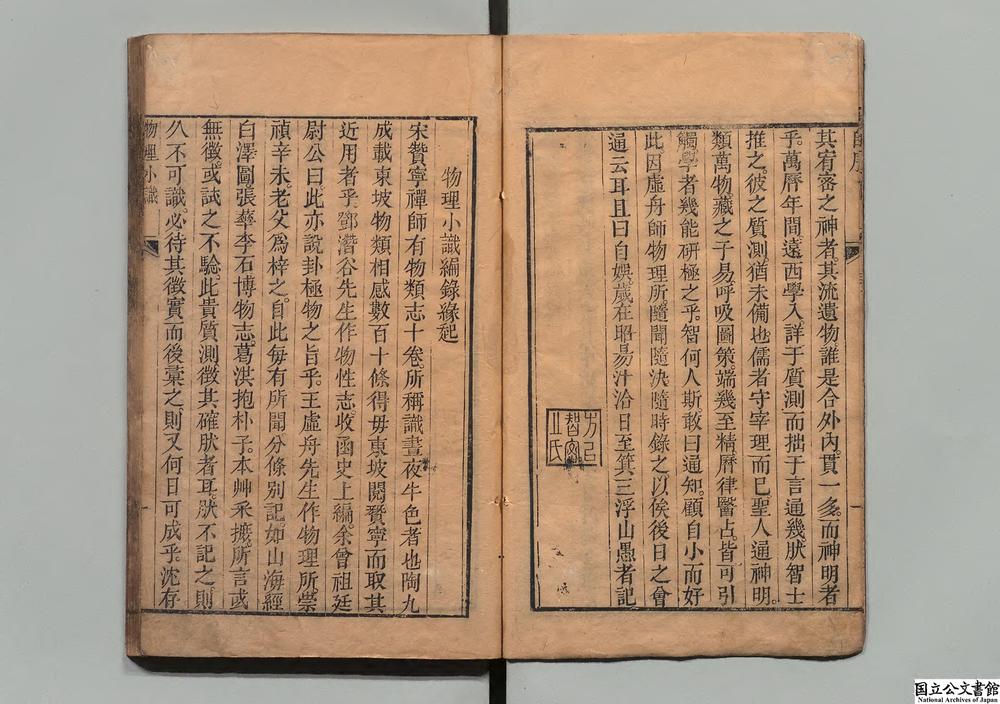 其宥密之神者其流遺物誰是合外內貫一多而神明者
乎萬曆年間遠西學入詳于質測而拙于言通幾狀智士
推之彼之質測猶未備也儒者守宰理而已聖人通神明
類萬物藏之于易呼吸圖策端幾至精曆律醫占皆可引
觸學者幾能研極之乎智何人斯敢曰通知顧自小而好
此因虛舟師物理所隨聞隨決隨時錄之以俟後日之會
通云耳且曰自娛歲在昭昜汁洽日至箕三浮山愚者記
物理小識編錄緣起
宋贊寧禪師有物類志十卷所稱識晝夜牛色者也陶九
成載東坡物類相感數百十條得毋東坡閱贊寧而取其
近用者乎鄧潛谷先生作物性志收函史上編余曾祖廷
尉公曰此亦說卦極物之旨乎王虛舟先生作物理所崇
禎辛未老父為梓之自此每有所聞分條別記如山海經
白澤圖張華李石博物志葛洪抱朴子本艸采摭所言或
無徵或試之不驗此貴質測徵其確肰者耳肰不記之則
久不可識必待其徵實而後彙之則又何日可成乎沈存
物理小識
一
一
國立公文書館
National Archives of Japan